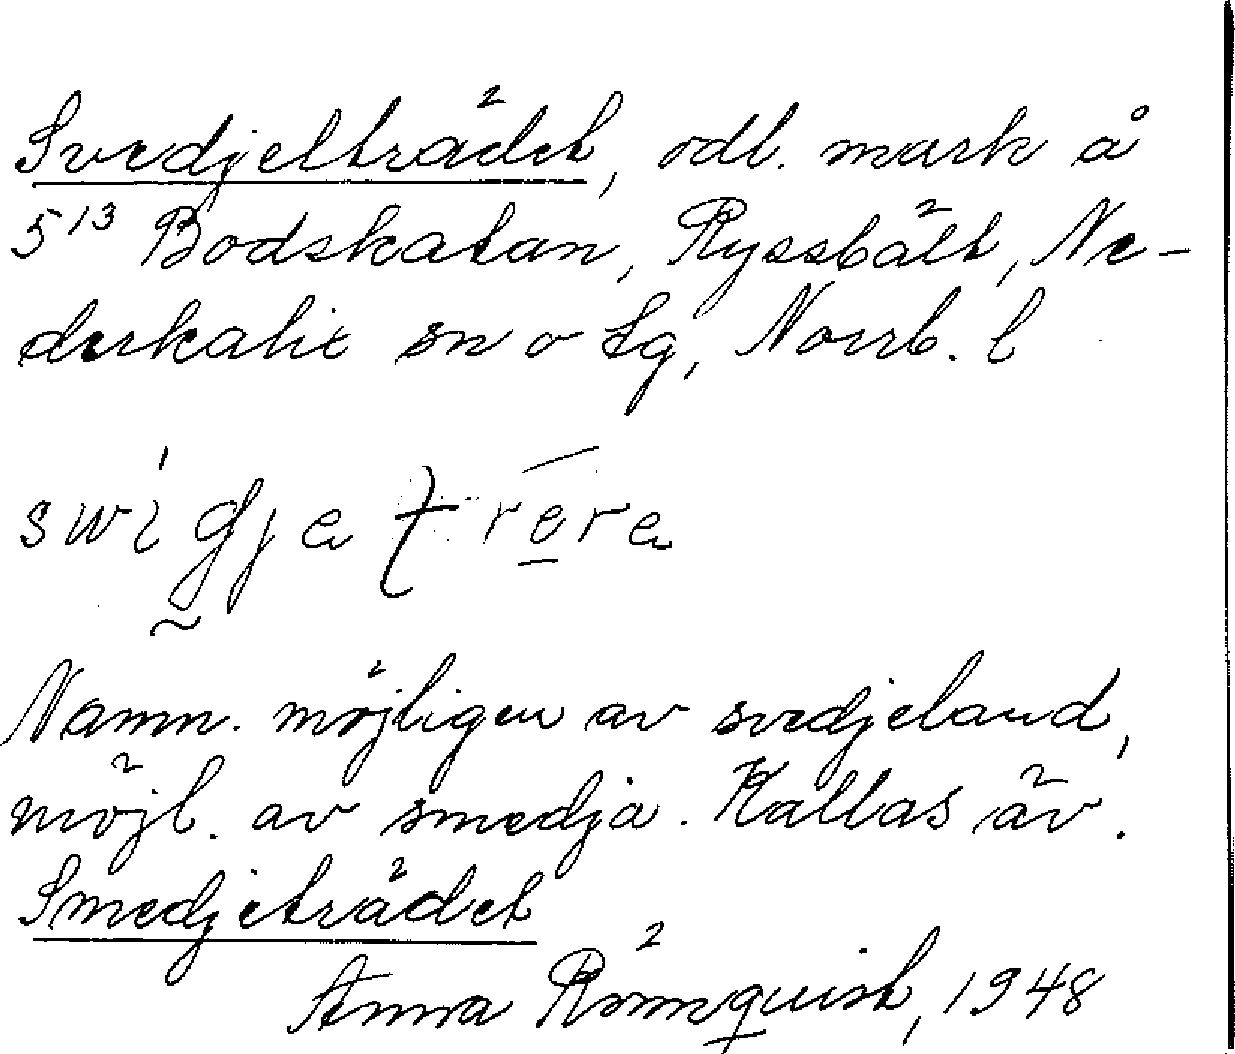 Svedjelträdet, odl. mark å
5¹³ Bodskatan, Ryssbält, Ne-
derkalix sn o tg, Norrb. l
Namn. möjligen av svedjeland,
möjl. av smedja. Kallas äv.
Smedjeträdet
Anna Rönnquist, 1948